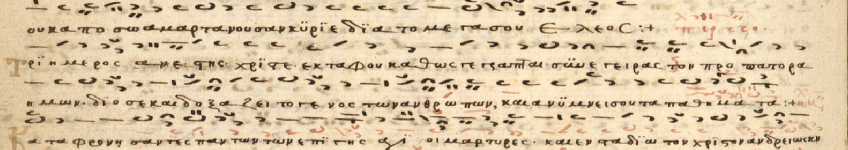 ουκ απο σω αμαρτανουσαν κυριε δια το μεγα σου ελεος :+
Τριημερος ανεστης χριστε εκ ταφου καθως γεγραπται συνεγειρας τον προπατορα
ημων· διο σε και δοξαζει το γενος των ανθρωπων, και ανυμνει σου τα παθηματα :+
Καταφρονησαντες παντων των επι της οι μαρτυρες· και εν σταδιω τον χριστον ανδρειως κη